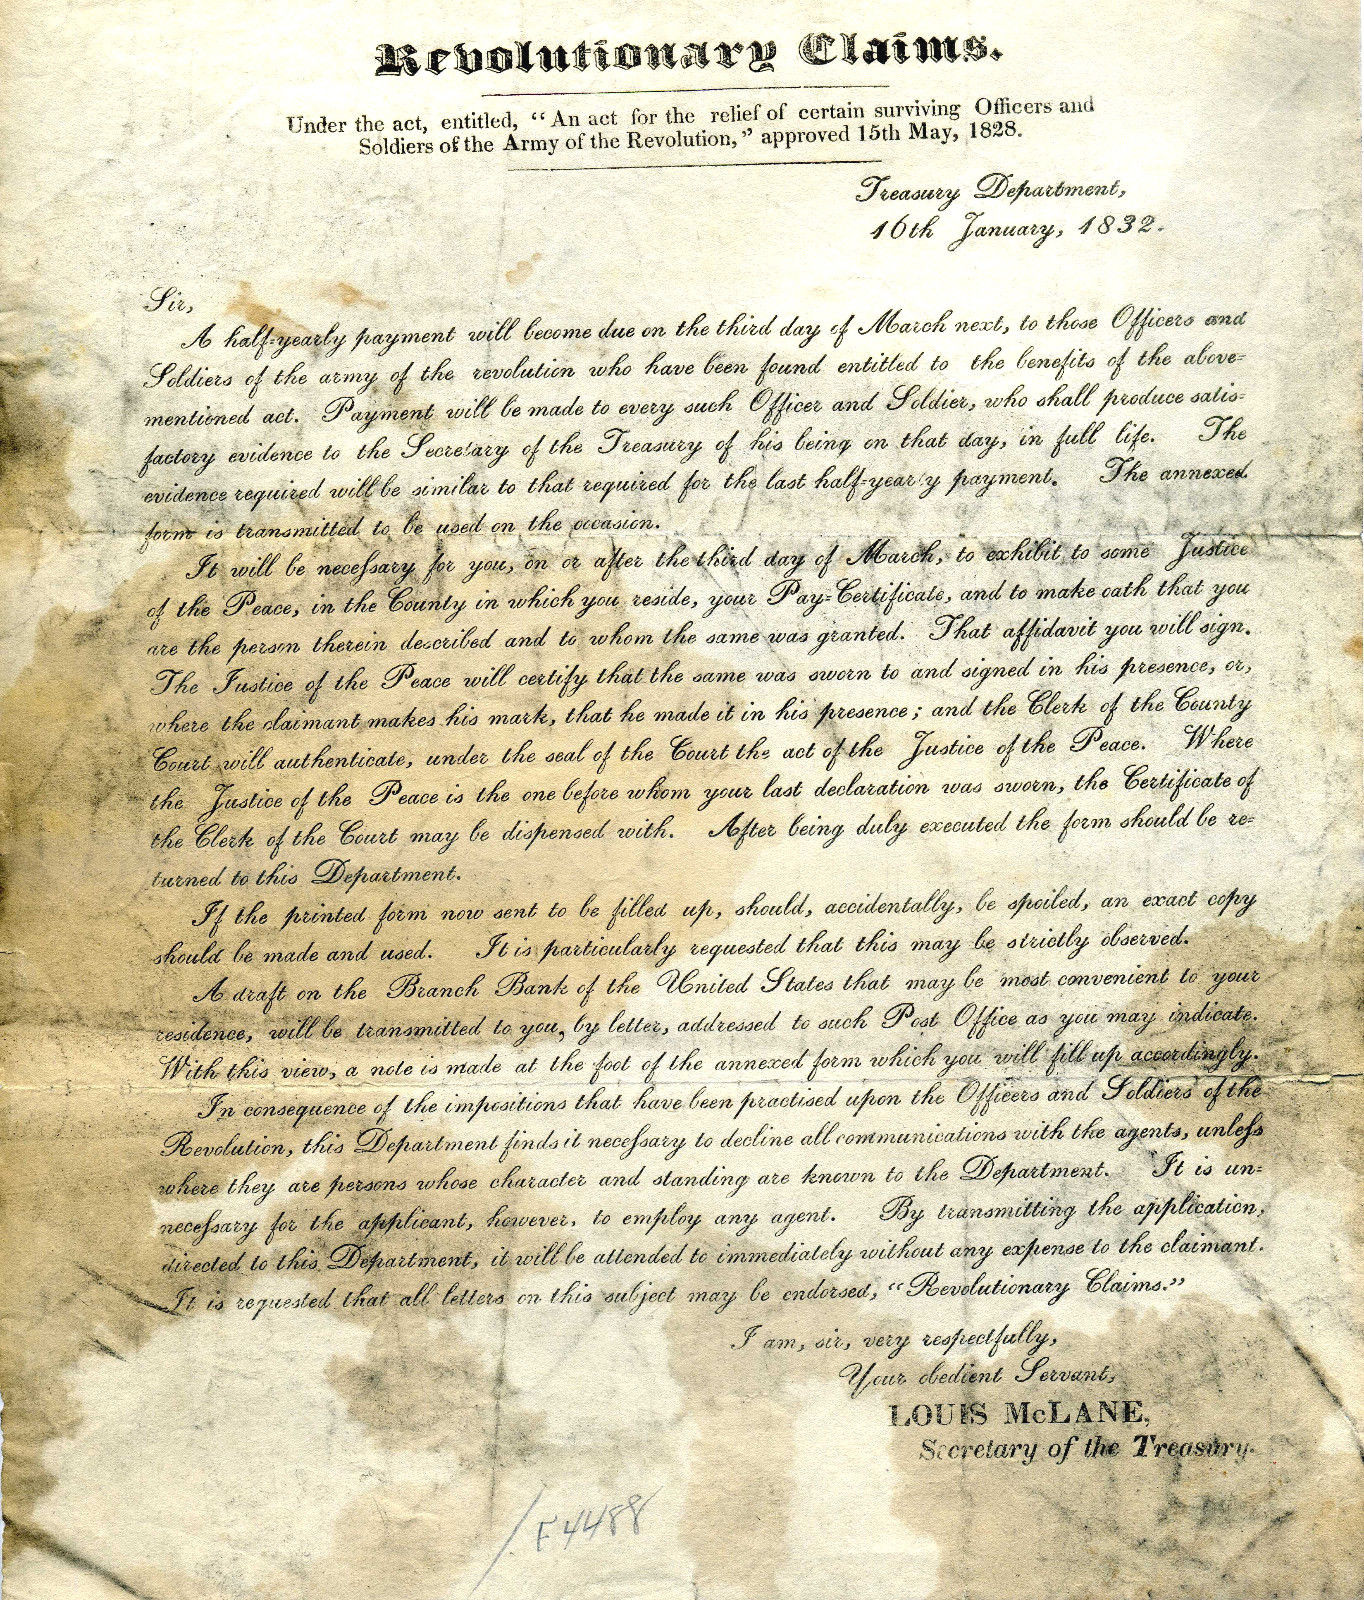 Revolutionary Claims.
Under the act, entitled, "An act for the relief of certain surviving Officers and
Soldiers of the Army of the Revolution," approved 15th May, 1828.
Treasury Department,
16th January, 1832.
Sir,
A half-yearly payment will become due on the third day of March next, to those Officers and
Soldiers of the army of the revolution who have been found entitled to the benefits of the above-
mentioned act. Payment will be made to every such Officer and Soldier, who shall produce satis-
factory evidence to the Secretary of the Treasury of his being on that day, in full life. The
evidence required will be similar to that required for the last half-yearly payment. The annexed
form is transmitted to be used on the occasion.
It will be neceſsary for you, on or after the third day of March, to exhibit to some Justice
of the Peace, in the County in which you reside, your Pay-Certificate, and to make oath that you
are the person therein described and to whom the same was granted. That affidavit you will sign.
The Justice of the Peace will certify that the same was sworn to and signed in his presence, or,
where the claimant makes his mark, that he made it in his presence; and the Clerk of the County
Court will authenticate, under the seal of the Court the act of the Justice of the Peace. Where
the Justice of the Peace is the one before whom your last declaration was sworn, the Certificate of
the Clerk of the Court may be dispensed with. After being duly executed the form should be re-
turned to this Department.
If the printed form now sent to be filled up, should, accidentally, be spoiled, an exact copy
should be made and used. It is particularly requested that this may be strictly observed.
A draft on the Branch Bank of the United States that may be most convenient to your
residence, will be transmitted to you, by letter, addressed to such Post Office as you may indicate.
With this view, a note is made at the foot of the annexed form which you will fill up accordingly.
In consequence of the impositions that have been practised upon the Officers and Soldiers of the
Revolution, this Department finds it neceſsary to decline all communications with the agents, unleſs
where they are persons whose character and standing are known to the Department. It is un-
neceſsary for the applicant, however, to employ any agent. By transmitting the application,
directed to this Department, it will be attended to immediately without any expense to the claimant.
It is requested that all letters on this subject may be endorsed, "Revolutionary Claims."
I am, sir, very respectfully,
Your obedient Servant,
LOUIS McLANE,
Secretary of the Treasury.
E4488